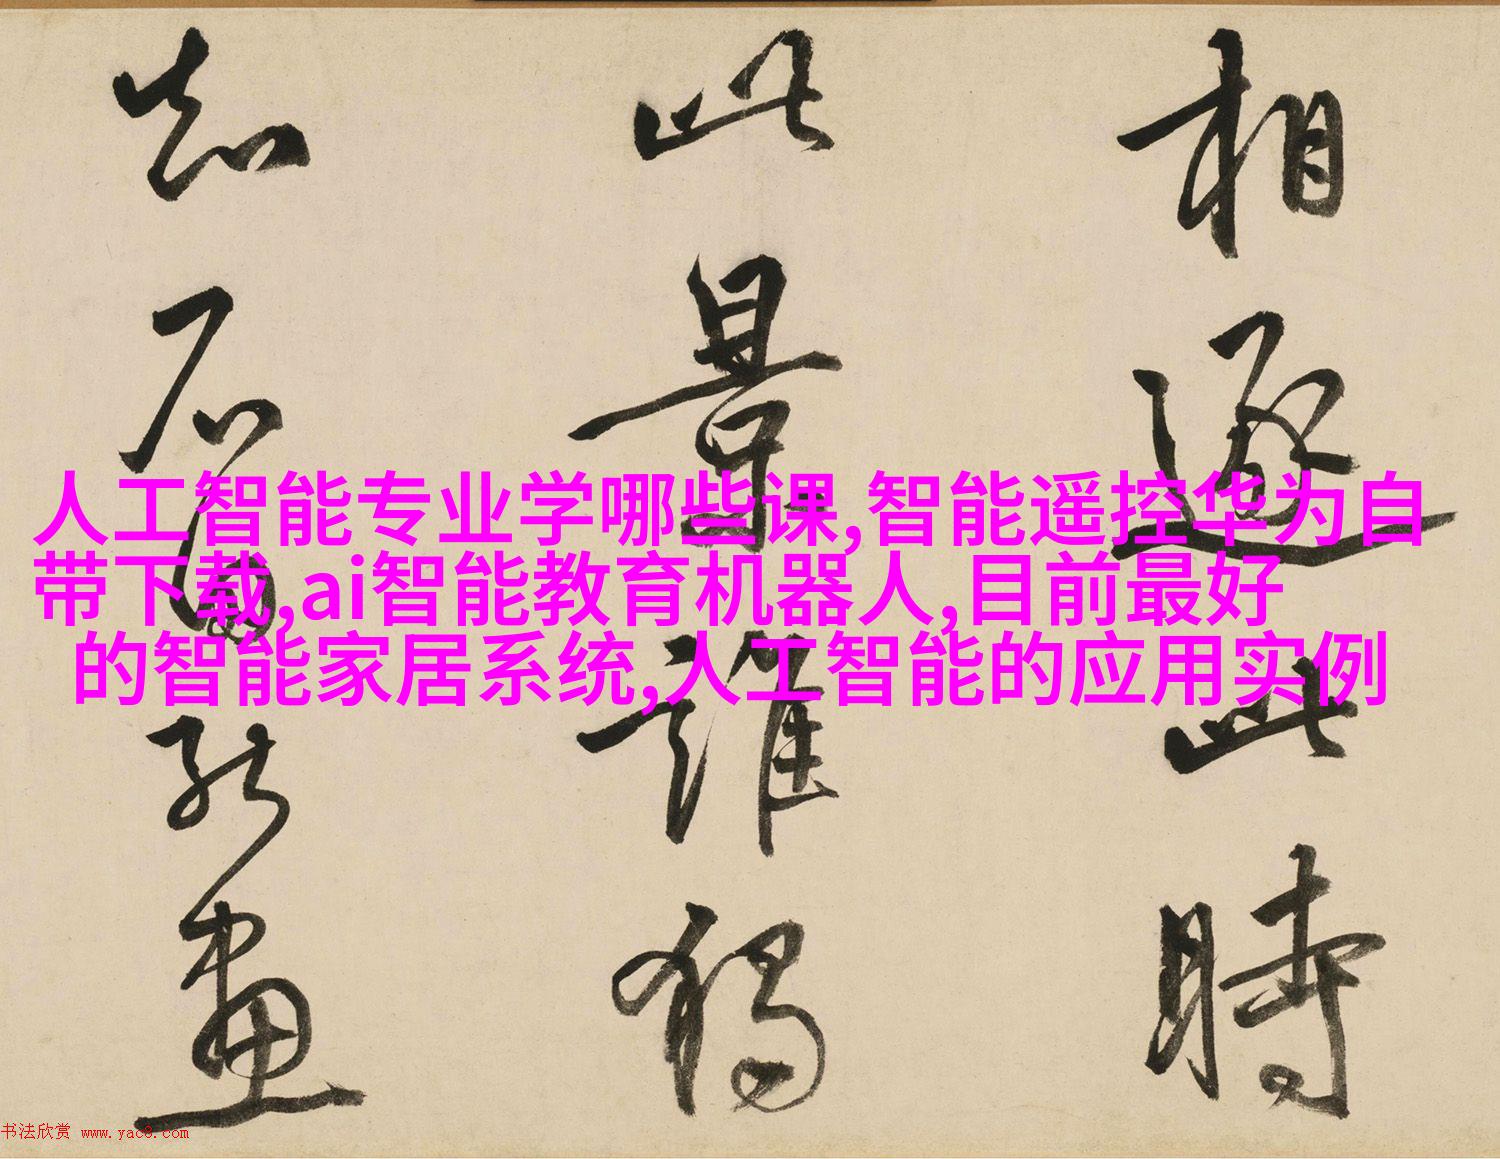 相逐此時
此景誰獨
知石田能畫
人工智能专业学哪些课,智能遥控华为自
带下载,ai智能教育机器人,目前最好
的智能家居系统,人工智能的应用实例
书法欣赏 www.yac8.com